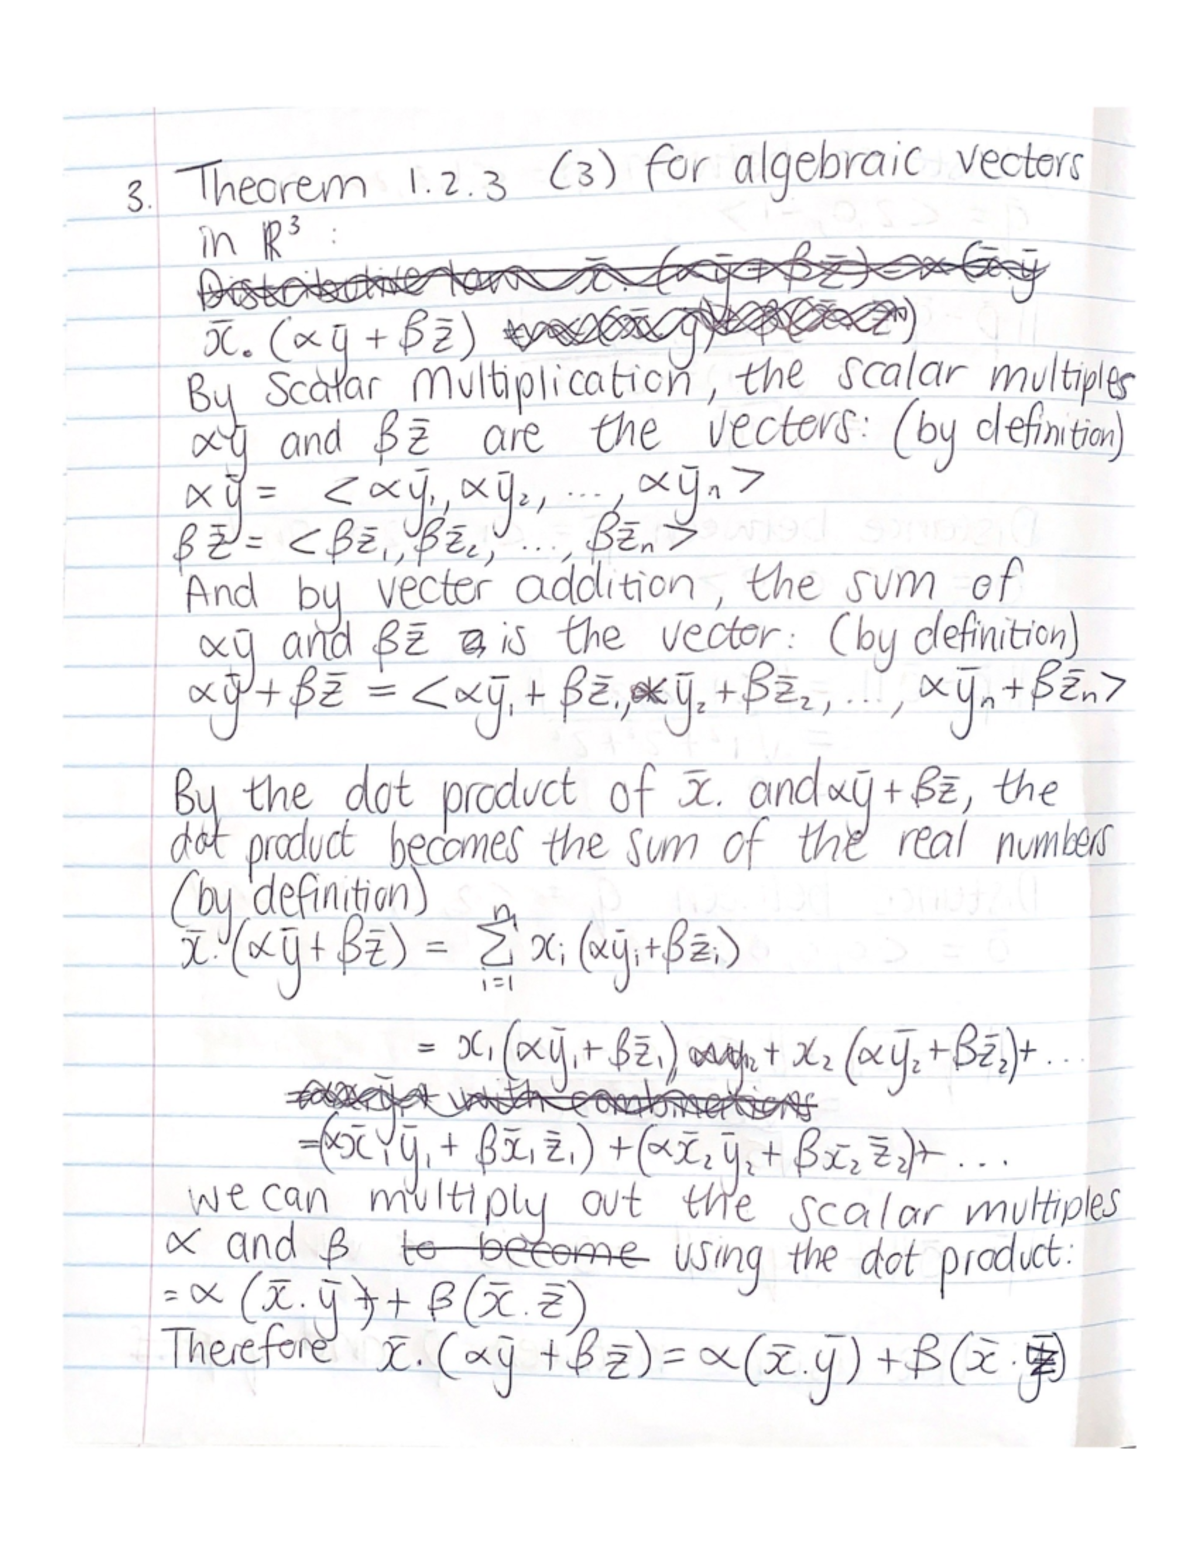 3. Theorem 1.2.3 (3) for algebraic vectors
in ℝ³ :
Distributive law x̄. (αȳ + βz̄) = α(x̄.ȳ
x̄. (αȳ + βz̄)
By Scalar Multiplication, the scalar multiples
αȳ and βz̄ are the vectors: (by definition)
αȳ = <αȳ₁, αȳ₂, ..., αȳₙ>
βz̄ = <βz̄₁, βz̄₂, ..., βz̄ₙ>
And by vector addition, the sum of
αȳ and βz̄ is the vector: (by definition)
αȳ + βz̄ = <αȳ₁ + βz̄₁, αȳ₂ + βz̄₂, ..., αȳₙ + βz̄ₙ>
By the dot product of x̄. and αȳ + βz̄, the
dot product becomes the sum of the real numbers
(by definition)
x̄.(αȳ + βz̄) = Σⁿᵢ₌₁ xᵢ (αȳᵢ + βz̄ᵢ)
= x₁(αȳ₁ + βz̄₁) + x₂ (αȳ₂ + βz̄₂) + ...
with combinations
=(αx̄₁ȳ₁ + βx̄₁z̄₁) + (αx̄₂ȳ₂ + βx̄₂z̄₂) + ...
we can multiply out the scalar multiples
α and β to become using the dot product:
= α (x̄.ȳ) + β(x̄.z̄)
Therefore x̄.(αȳ + βz̄) = α(x̄.ȳ) + β(x̄.z̄)